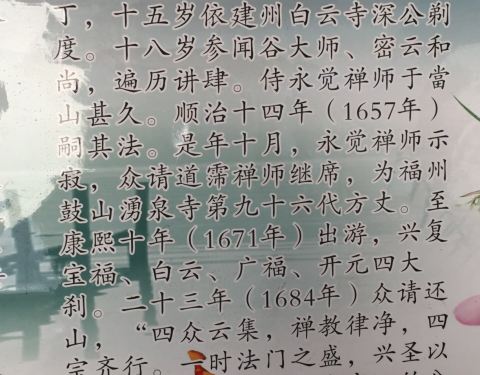 丁，十五岁依建州白云寺深公剃
度。十八岁参闻谷大师、密云和
尚，遍历讲肆。侍永觉禅师于當
山甚久。顺治十四年（1657年）
嗣其法。是年十月，永觉禅师示
寂，众请道霈禅师继席，为福州
鼓山湧泉寺第九十六代方丈。至
康熙十年（1671年）出游，兴复
宝福、白云、广福、开元四大
刹。二十三年（1684年）众请还
山，“四众云集，禅教律净，四
宗齐行。一时法门之盛，兴圣以